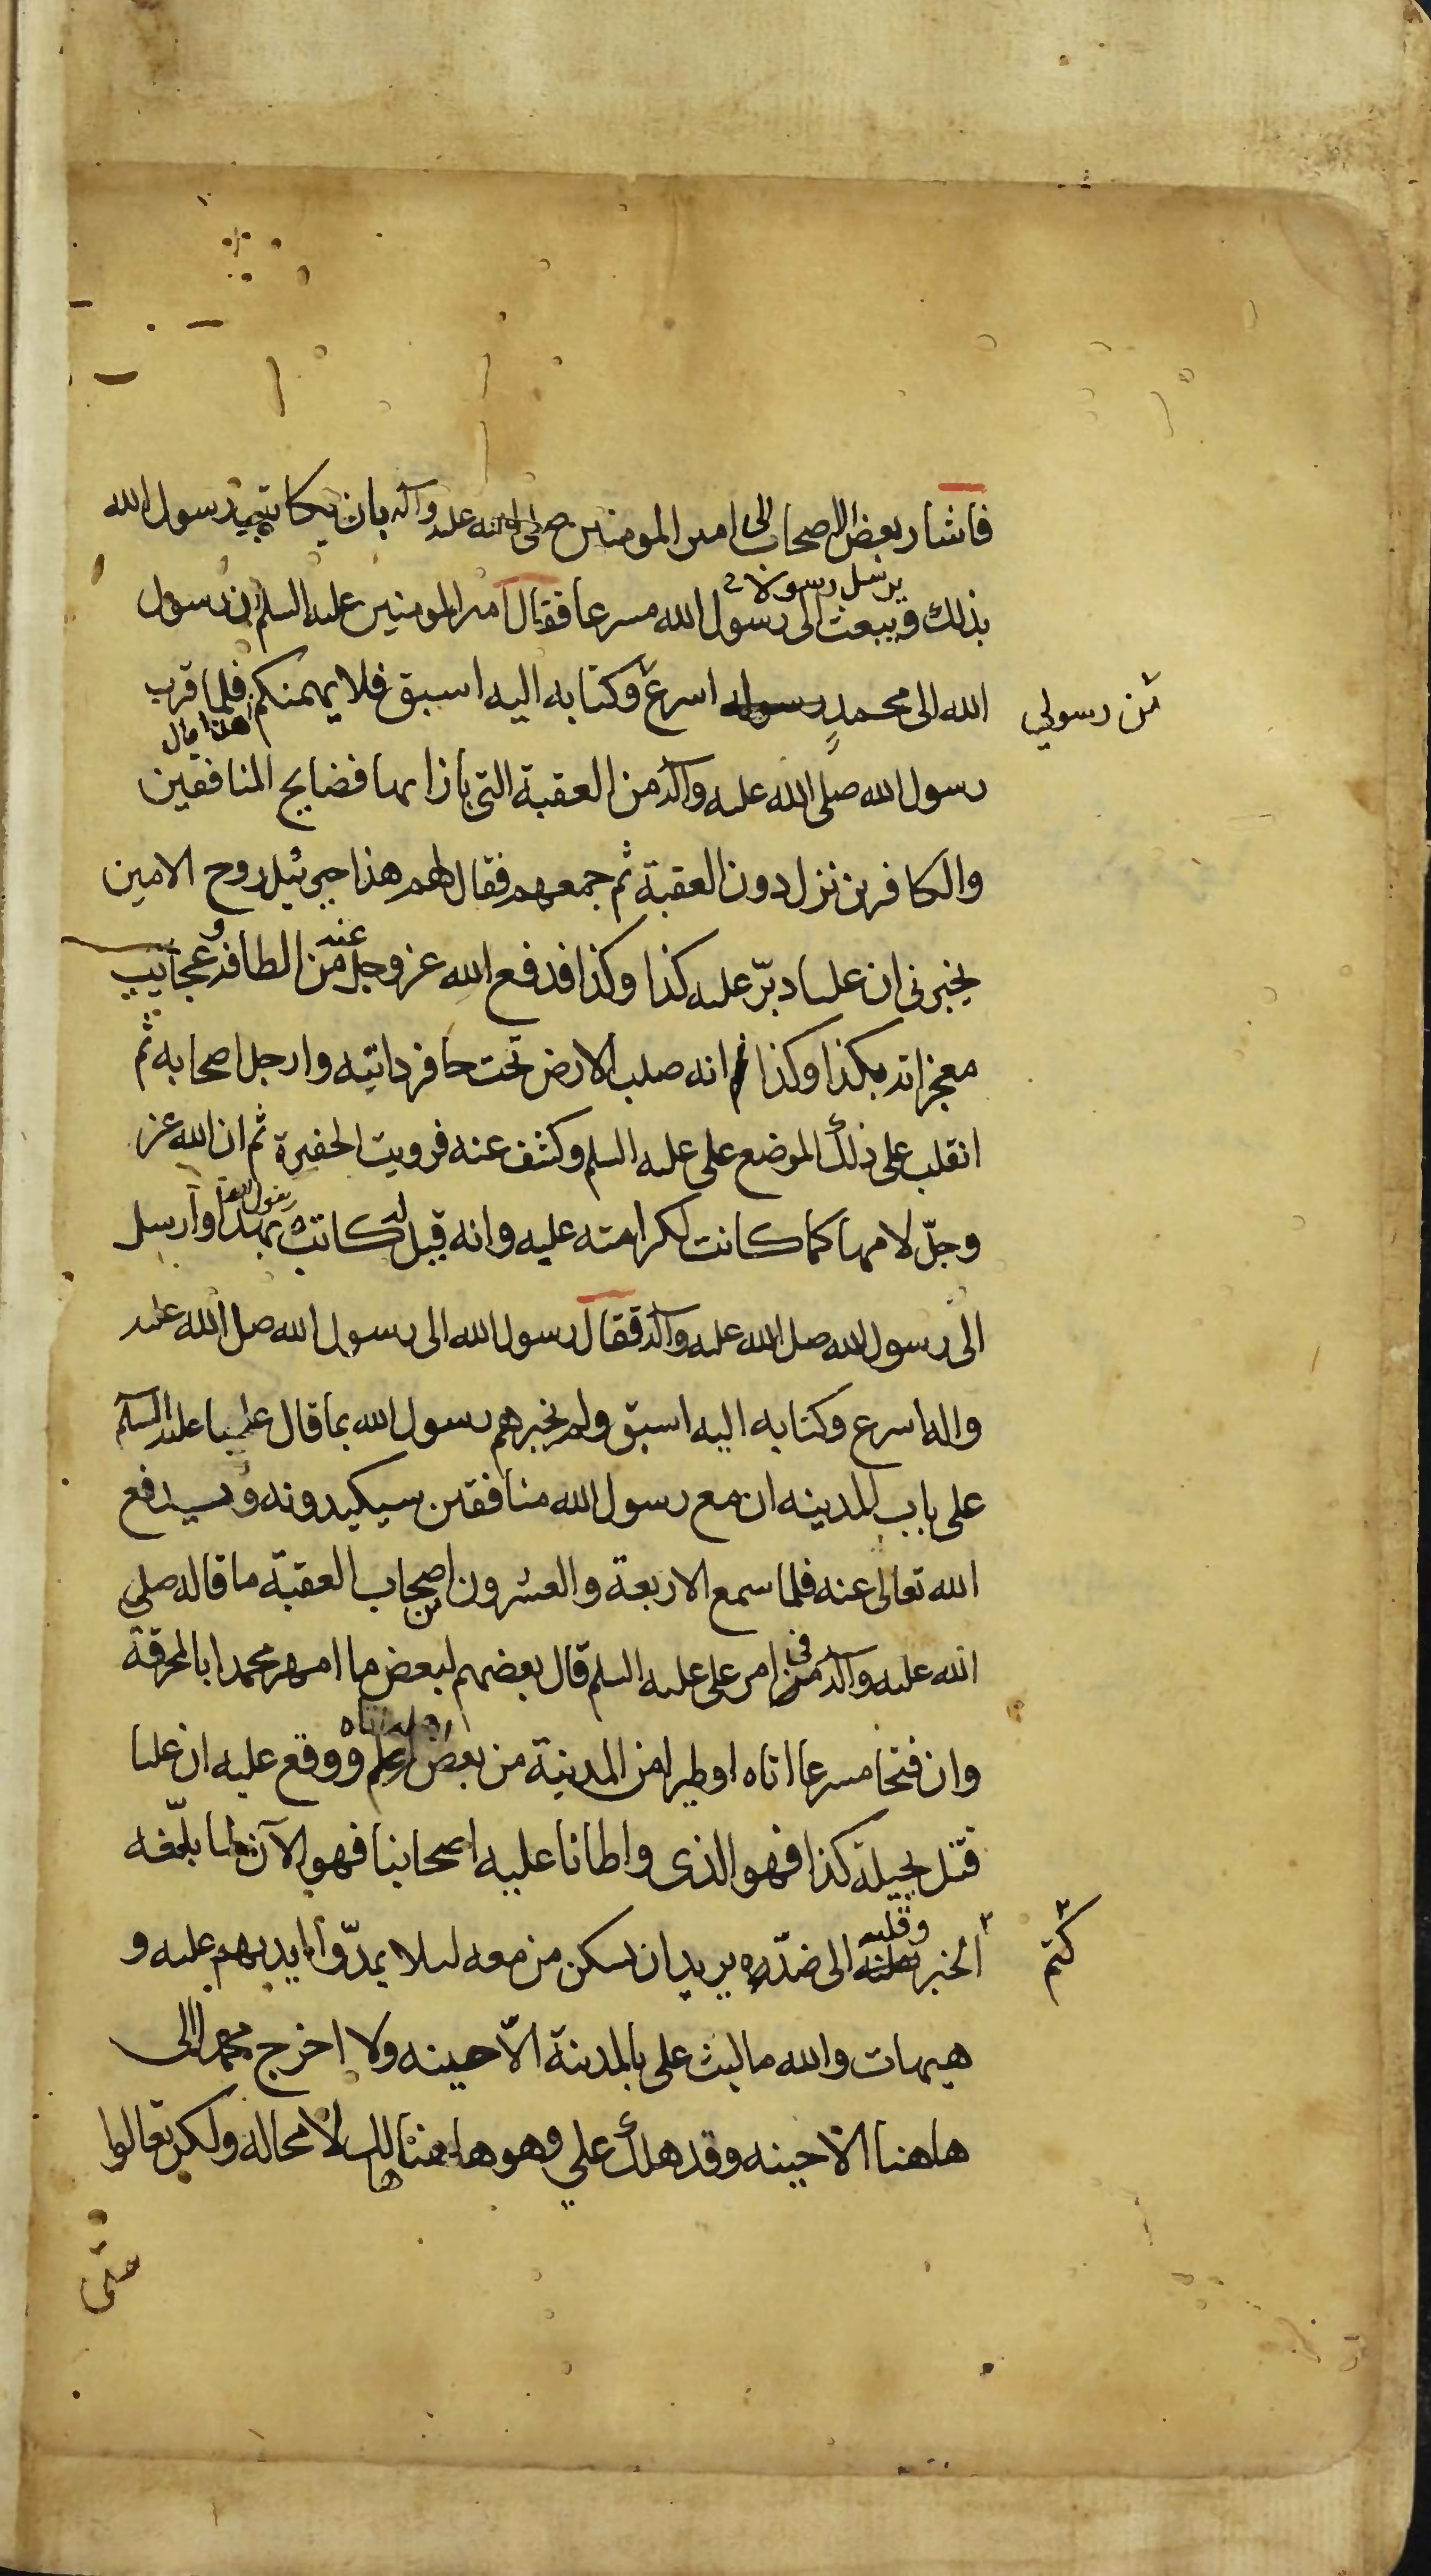 فاشار بعض الاصحاب الى امير المومنين صلى الله عليه وآله بان يكاتب رسول الله
يرسل رسولا
بذلك ويبعث الى رسول الله مسرعا فقال امير المومنين عليه السلم ان رسول
الله الى محمد رسوله اسرع وكتابه اليه اسبق فلا يهمنكم فلما قرب
من رسولي
هذا قال
رسول الله صلى الله عليه وآله من العقبة التى بازايها فضايح المنافقين
والكافرين نزل دون العقبة ثم جمعهم فقال لهم هذا جبرئيل روح الامين
يخبرنى ان عليا دبّر عليه كذا وكذا فدفع الله عز وجل عنه من الطافه وعجايب
معجزاته بكذا وكذا انه صلب الارض تحت حافر دابته وارجل اصحابه ثم
انقلب على ذلك الموضع على عليه السلم وكشف عنه فرويت الحفيرة ثم ان الله عز
وجلّ لامها كما كانت لكرامته عليه وانه قيل له كاتب بهذا وارسل
رسول الله
الى رسول الله صلى الله عليه وآله فقال رسول الله الى رسول الله صلى الله عليه
واله اسرع وكتابه اليه اسبق ولم يخبرهم رسول الله بما قال علي عليه السلم
على باب المدينه ان مع رسول الله منافقين سيكيدونه وسيدفع
الله تعالى عنه فلما سمع الاربعة والعشرون اصحاب العقبة ما قاله صلى
الله عليه وآله فى امر على عليه السلم قال بعضهم لبعض ما امهر محمدا بالمخرقة
وان فتحا مسرعا اتاه او طيرا من المدينة من بعض اهله ووقع عليه ان عليا
قتل بحيلة كذا فهو الذى واطانا عليه اصحابنا فهو الآن لما بلغه
كتم
الخبر وقلبه الى ضدّه يريد ان يسكن من معه لئلا يمدّوا ايديهم عليه و
هيهات والله ما لبث على بالمدينة الّا حينه ولا اخرج محمدا الى
هاهنا الا حينه وقد هلك علي وهو هاهنا هالك لا محاله ولكن تعالوا
حتى